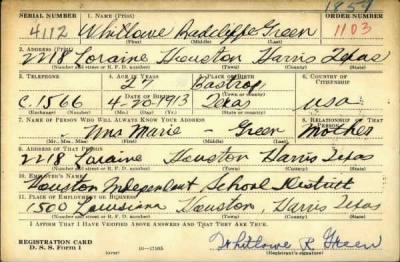 1859
SERIAL NUMBER 1. NAME (Print) ORDER NUMBER
4112 Whitlowe Radcliffe Green 1103
(First) (Middle) (Last)
2. ADDRESS (Print)
2218 Loraine Houston Harris Texas
(Number and street or R. F. D. number) (Town) (County) (State)
3. TELEPHONE 4. AGE IN YEARS 5. PLACE OF BIRTH 6. COUNTRY OF CITIZENSHIP
27 Bastrop
DATE OF BIRTH (Town or county)
C.1566 4-20-1913 Texas USA
(Exchange) (Number) (Mo.) (Day) (Yr.) (State or country)
7. NAME OF PERSON WHO WILL ALWAYS KNOW YOUR ADDRESS 8. RELATIONSHIP OF THAT PERSON
Marie - Green Mother
(Mr., Mrs., Miss) (First) (Middle) (Last)
9. ADDRESS OF THAT PERSON
2218 Loraine Houston Harris Texas
(Number and street or R. F. D. number) (Town) (County) (State)
10. EMPLOYER'S NAME
Houston Independent School District
11. PLACE OF EMPLOYMENT OR BUSINESS
1500 Louisiana Houston, Harris Texas
(Number and street or R. F. D. number) (Town) (County) (State)
I AFFIRM THAT I HAVE VERIFIED ABOVE ANSWERS AND THAT THEY ARE TRUE.
REGISTRATION CARD
D. S. S. Form 1
Whitlowe R Green
(Registrant's signature)